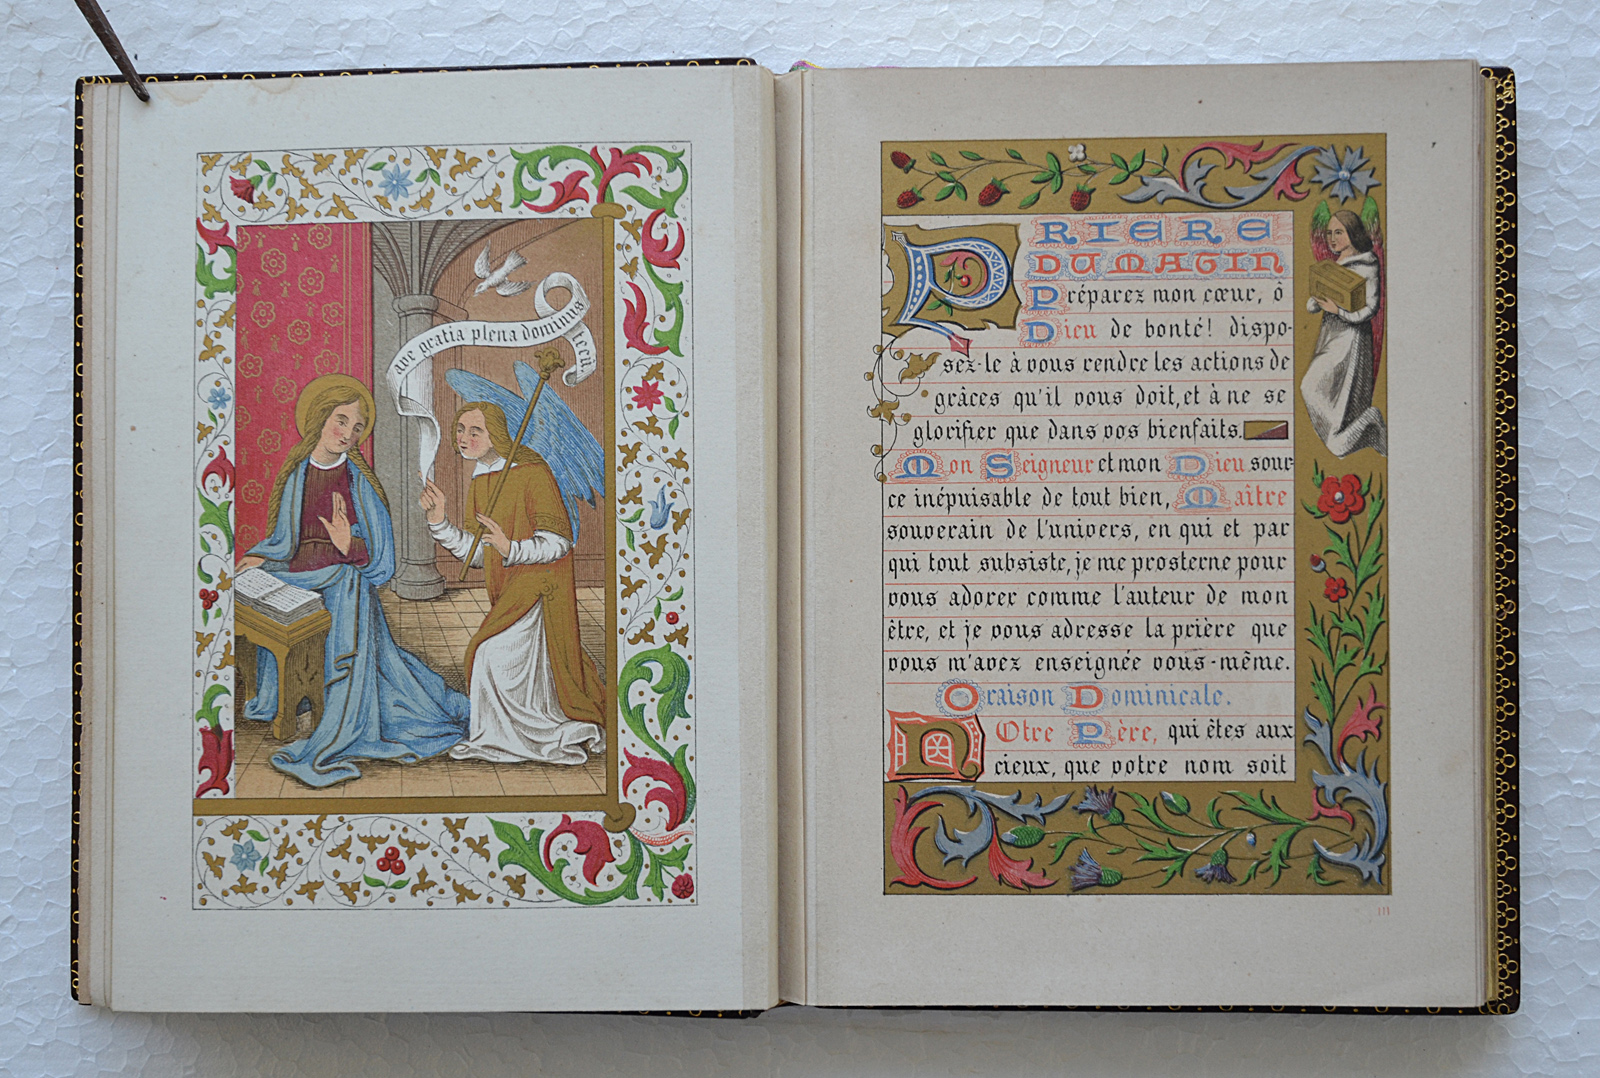 ave gratia plena dominus tecū.
PRIERE
DU MATIN
Préparez mon cœur, ô
Dieu de bonté! dispo-
sez-le à vous rendre les actions de
grâces qu'il vous doit, et à ne se
glorifier que dans vos bienfaits.
Mon Seigneur et mon Dieu sour-
ce inépuisable de tout bien, Maître
souverain de l'univers, en qui et par
qui tout subsiste, je me prosterne pour
vous adorer comme l'auteur de mon
être, et je vous adresse la prière que
vous m'avez enseignée vous-même.
Oraison Dominicale.
NOtre Père, qui êtes aux
cieux, que votre nom soit
III